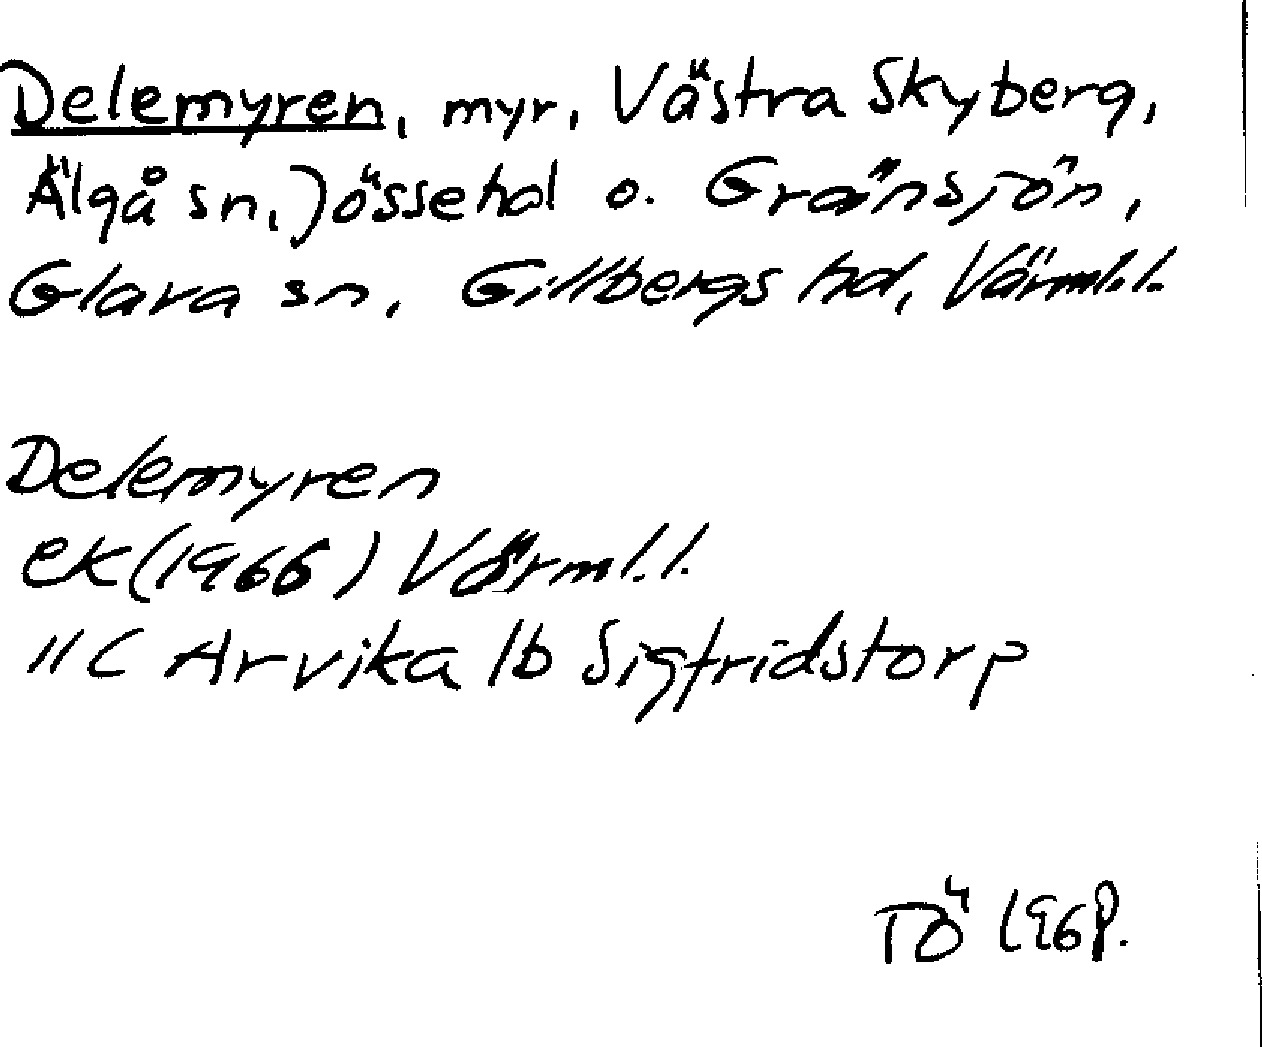 Delemyren, myr, Västra Skyberg,
Älgå sn, Jösse hd o. Gränsjön,
Glava sn, Gillbergs hd, Värml.l.
Delemyren
ek (1966) Värml.l.
11C Arvika 1b Sigfridstorp
TÖ 1968.